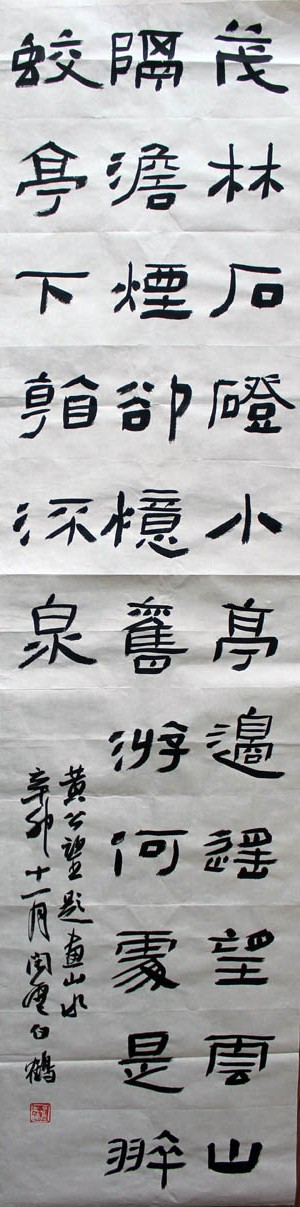 茂林石磴小亭邊遙望雲山
隔澹煙卻憶舊游何處是翠
蛟亭下看流泉
黃公望題畫山水
辛卯十一月白鶴